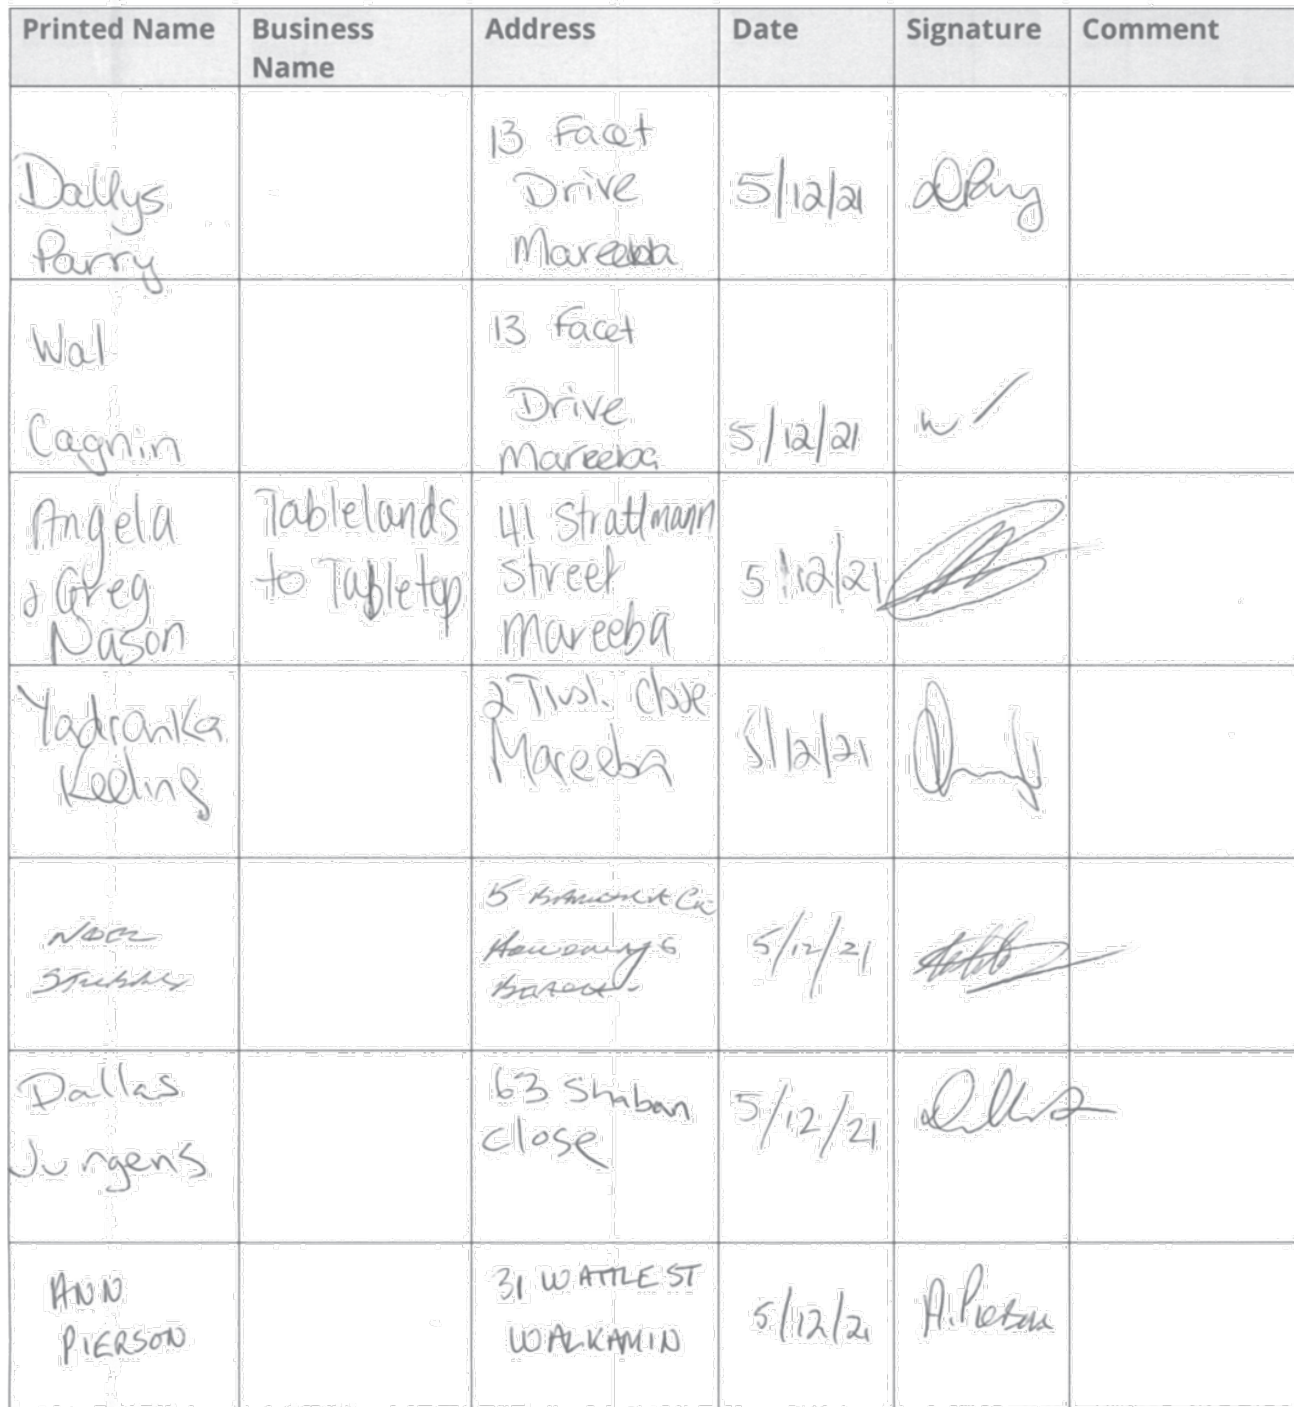 Printed Name
Business
Name
Address
Date
Signature
Comment
Dallys
Parry
13 Facet
Drive
Mareeba
5/12/21
Wal
Cagnin
13 Facet
Drive
Mareeba
5/12/21
W
Angela
& Greg
Nason
Tablelands
to Tabletop
41 Strattmann
Street
Mareeba
5/12/21
Yadranka
Keeling
2 Close
Mareeba
5/12/21
Noel
5
5/12/21
Dallas
Jurgens
63 Shaban
Close
5/12/21
ANN
PIERSON
31 WATTLE ST
WALKAMIN
5/12/21
A. Pierson